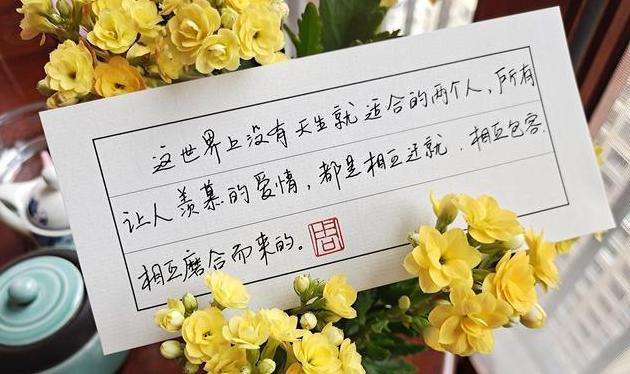 这世界上没有天生就适合的两个人,所有
让人羡慕的爱情,都是相互迁就.相互包容.
相互磨合而来的。